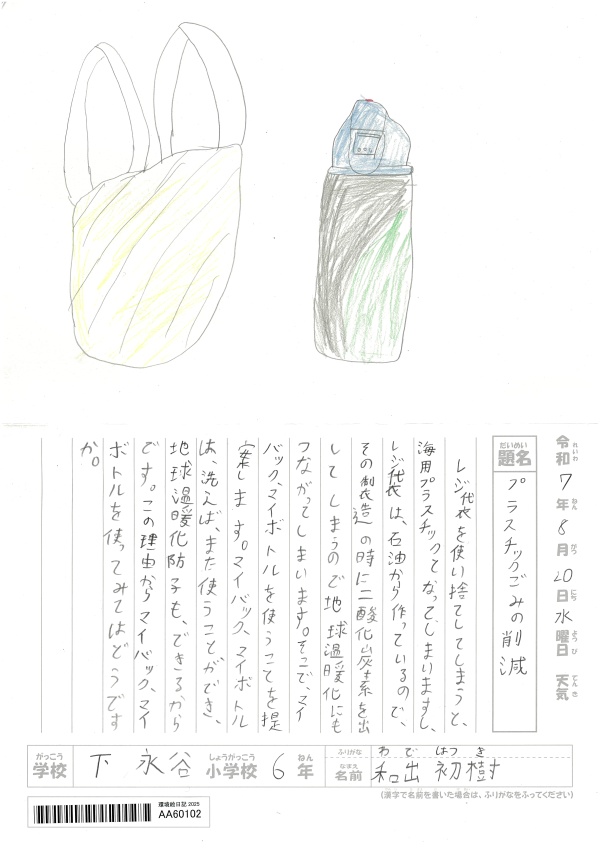 令和7年8月20日水曜日 天気
れいわ ねん がつ にち ようび てんき
だいめい
題名 プラスチックごみの削減
レジ袋を使い捨てしてしまうと、
海用プラスチックとなってしまいますし、
レジ袋は、石油から作っているので、
その製造の時に二酸化炭素を出
してしまうので地球温暖化にも
つながってしまいます。そこで、マイ
バック、マイボトルを使うことを提
案します。マイバック、マイボトル
は、洗えば、また使うことができ、
地球温暖化防子も、できるから
です。この理由からマイバック、マイ
ボトルを使ってみてはどうです
か。
がっこう しょうがっこう ねん ふりがな わで はつき
学校 下永谷 小学校 6年 なまえ 名前 和出 初樹
(漢字で名前を書いた場合は、ふりがなをふってください)
環境絵日記 2025
AA60102